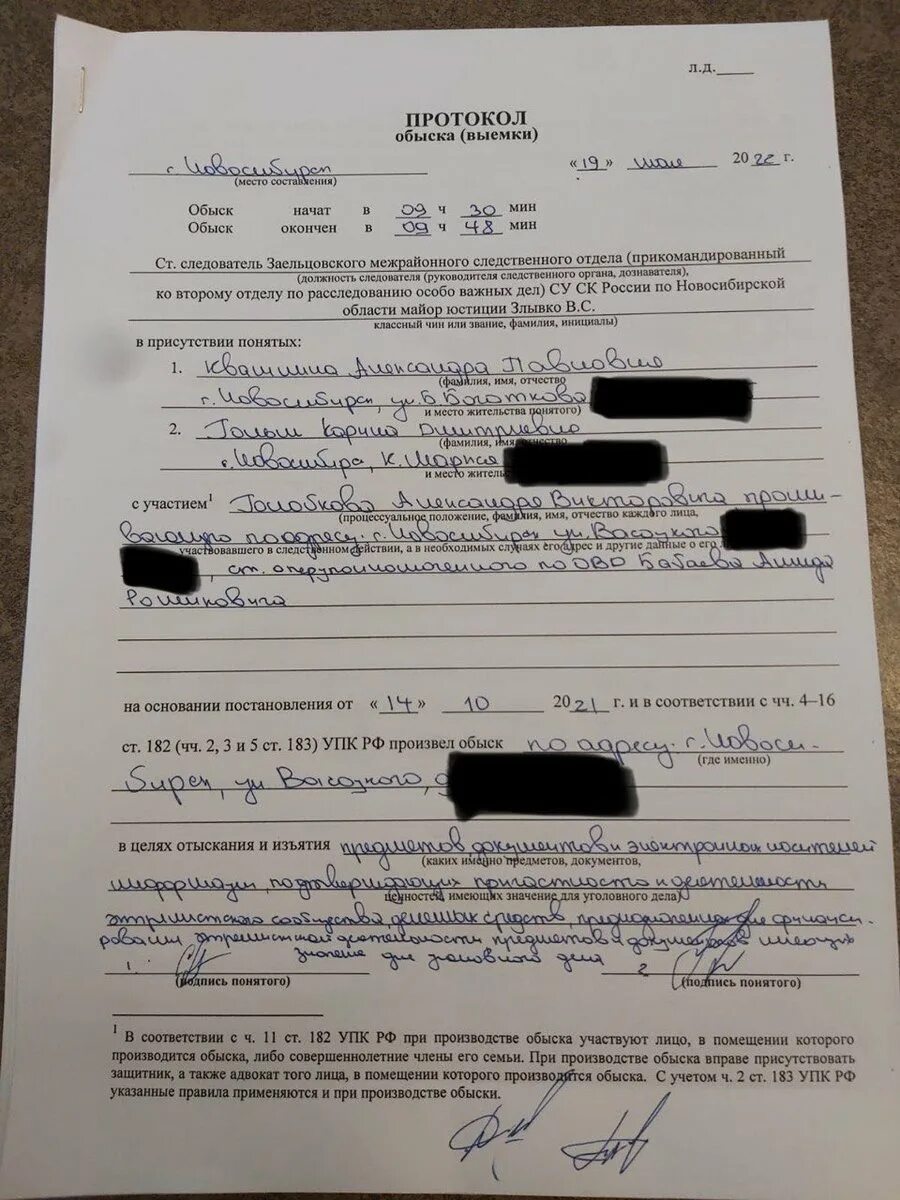 Л.Д.____
ПРОТОКОЛ
обыска (выемки)
г. Новосибирск «19» июля 2022 г.
(место составления)
Обыск начат в 09 ч 30 мин
Обыск окончен в 09 ч 48 мин
Ст. следователь Заельцовского межрайонного следственного отдела (прикомандированный
(должность следователя (руководителя следственного органа, дознавателя),
ко второму отделу по расследованию особо важных дел) СУ СК России по Новосибирской
области майор юстиции Злывко В.С.
классный чин или звание, фамилия, инициалы)
в присутствии понятых:
1. Квашнина Александра Павловна
(фамилия, имя, отчество
г. Новосибирск, ул. Б. Богаткова
и место жительства понятого)
2. Карина Дмитриевна
(фамилия, имя, отчество
г. Новосибирск, К. Маркса
и место житель
с участием¹ Голобкова Александра Викторовича прожи-
(процессуальное положение, фамилия, имя, отчество каждого лица,
вающего по адресу: г. Новосибирск ул. Высоцкого
участвовавшего в следственном действии, а в необходимых случаях его адрес и другие данные о его л
, ст. оперуполномоченного по ОВД Бабаева
на основании постановления от «14» 10 2021 г. и в соответствии с чч. 4–16
ст. 182 (чч. 2, 3 и 5 ст. 183) УПК РФ произвел обыск по адресу: г. Новоси-
(где именно)
бирск, ул Высоцкого, д
в целях отыскания и изъятия предметов документов и электронных носителей
(каких именно предметов, документов,
информации, подтверждающих причастность к деятельности
ценностей, имеющих значение для уголовного дела)
экстремистского сообщества, денежных средств, предназначенных для финанси-
рования экстремистской деятельности, предметов и документов имеющих
значение для уголовного дела
1. 2
(подпись понятого) (подпись понятого)
¹ В соответствии с ч. 11 ст. 182 УПК РФ при производстве обыска участвуют лицо, в помещении которого
производится обыск, либо совершеннолетние члены его семьи. При производстве обыска вправе присутствовать
защитник, а также адвокат того лица, в помещении которого производится обыск. С учетом ч. 2 ст. 183 УПК РФ
указанные правила применяются и при производстве обыски.